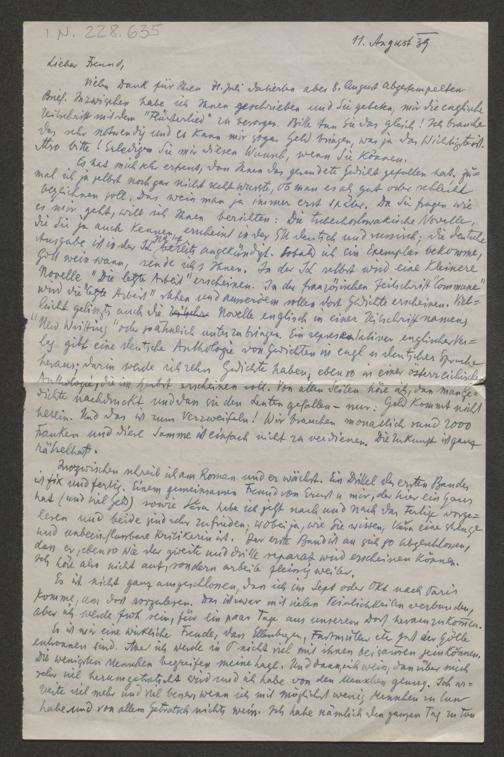 I.N. 228.635
11. August 39
Lieber Freund,
Vielen Dank für Ihren 31. Juli datierten aber 8. August abgestempelten
Brief. Inzwischen habe ich Ihnen geschrieben und Sie gebeten, mir die englische
Zeitschrift mit dem "Flüsterlied" zu besorgen. Bitte tun Sie das gleich! Ich brauche
das sehr notwendig und es kann mir sogar Geld bringen, was ja das Wichtigste ist.
Also bitte! Erledigen Sie mir diesen Wunsch, wenn Sie können.
Es hat mich sehr erfreut, dass Ihnen das gesendete Gedicht gefallen hat, zu-
mal ich ja selbst noch gar nicht recht wusste, ob man es als gut oder schlecht
bezeichnen soll. Das weiss man ja immer erst später. Da Sie fragen wie
es mir geht, will ich Ihnen berichten: Die tschechoslowakische Novelle,
die Sie ja auch kennen, erscheint in der SU deutsch und russisch; die deutsche
Ausgabe ist in der IL bereits angekündigt. Sobald ich ein Exemplar bekomme,
Gott weiss wann, sende ichs Ihnen. In der IL selbst wird eine kleinere
Novelle "Die letzte Arbeit" erscheinen. In der französischen Zeitschrift "Commune"
wird die "letzte Arbeit" stehen und ausserdem sollen dort Gedichte erscheinen. Viel-
leicht gelingt es auch die Novelle englisch in einer Zeitschrift namens
"New Writing" oder so ähnlich unterzubringen. Ein repräsentativer englischer Ver-
lag gibt eine deutsche Anthologie von Gedichten in engl. u. deutscher Sprache
heraus; darin werde ich zehn Gedichte haben, ebenso in einer österreichischen
Anthologie, die im Herbst erscheinen soll. Von allen Seiten höre ich, dass man Ge-
dichte nachdruckt und dass sie den Leuten gefallen – nur: Geld kommt nicht
herein. Und das ist zum Verzweifeln! Wir brauchen monatlich rund 2000
Franken und diese Summe ist einfach nicht zu verdienen. Die Zukunft ist ganz
rätselhaft.
Inzwischen schreib ich am Roman und er wächst. Ein Drittel des ersten Bandes
ist fix und fertig. Einem gemeinsamen Freund von Ernst u. mir, der hier ein Haus
hat (und viel Geld) sowie habe ich jetzt nach und nach das Fertige vorge-
lesen und beide sind sehr zufrieden, wobei ja, wie Sie wissen, eine strenge
und unbeeinflussbare Kritikerin ist. Der erste Band ist an sich so abgeschlossen,
dass er, ebenso wie der zweite und dritte separat wird erscheinen können.
Ich höre also nicht auf, sondern arbeite fleissig weiter.
Es ist nicht ganz ausgeschlossen, dass ich im Sept oder Okt nach Paris
komme, um dort vorzulesen. Das ist zwar mit vielen Peinlichkeiten verbunden,
aber ich werde froh sein, für ein paar Tage aus unserem Dorf herauszukommen.
Es ist mir eine wirkliche Freude, dass Ellenbogen, etc. gut der Hölle
entronnen sind. Aber ich werde in P nicht viel mit ihnen beisammen sein können.
Die wenigsten Menschen begreifen meine Lage. Und dann ich weiss, dass über mich
sehr viel herumgetratscht wird und ich habe von den Menschen genug. Ich ar-
beite viel mehr und viel besser wenn ich mit möglichst wenig Menschen zu tun
habe und von allem Getratsch nichts weiss. Ich habe nämlich den ganzen Tag zu tun